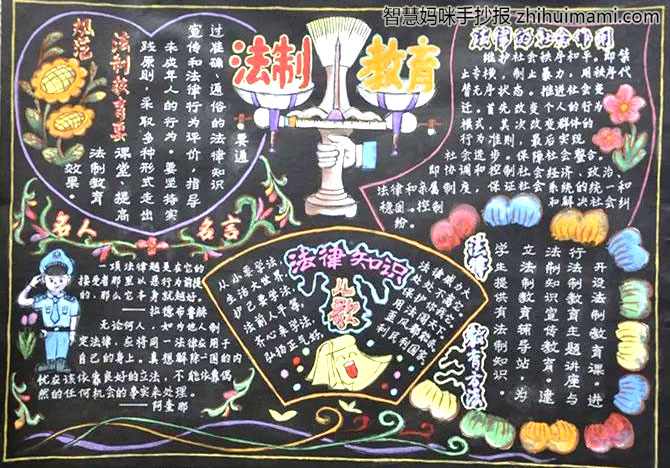 智慧妈咪手抄报 zhihuimami.com
法制
教育
规范
法制教育要
要通
过准确、通俗的法律知识
宣传和法律行为评价,指导
未成年人的行为。要坚持实
践原则,采取多种形式走出
课堂、提高
法制教育
效果。
法律的社会作用
维护社会秩序和平。即禁
止专横,制止暴力,用秩序代
替无序状态。推进社会变
迁。首先改变个人的行为
模式,其次改变群体的
行为准则,最后实现
社会进步。保障社会整合。
即协调和控制社会经济、政治、
法律和亲属制度,保证社会系统的统一和
稳固。控制
和解决社会纠
纷。
名人
名言
一项法律越是在它的
接受者那里以恶行为前提
的,那么它本身就越好。
无论何人,如为他人制
定法律,应将同一法律应用于
自己的身上。真想解除一国的内
忧应该依靠良好的立法,不能依靠偶
然的任何机会的事实来处理。
——阿奎那
法律知识
儿歌
从小要学法,
生活大世界,
护己要学法,
法前人平等,
齐心来学法,
弘扬正气歌。
法律威力大
处处不离它
保你保我它
用法闯天下
利民利国家
法律
教育方法
开设法制教育课。进
行法制教育主题讲座与
法制知识宣传教育。建
立法制教育辅导站,为
学生提供有法制知识。